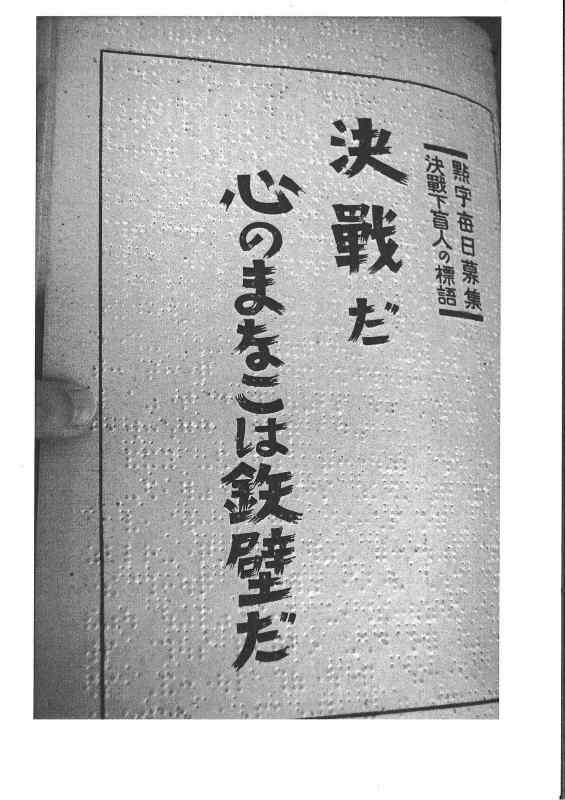 點字毎日募集
決戰下盲人の標語
決戰だ
心のまなこは鉄壁だ